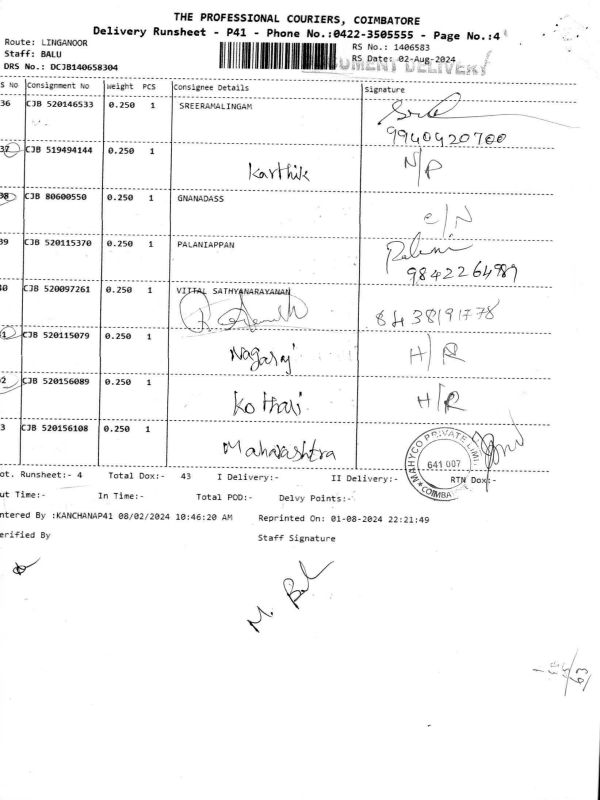 THE PROFESSIONAL COURIERS, COIMBATORE
Delivery Runsheet - P41 - Phone No.:0422-3505555 - Page No.:4
Route: LINGANOOR
RS No.: 1406583
Staff: BALU
RS Date: 02-Aug-2024
DRS No.: DCJB140658304
DELIVERY
S No Consignment No Weight PCS Consignee Details Signature
36 CJB 520146533 0.250 1 SREERAMALINGAM
9940420700
37 CJB 519494144 0.250 1 Karthik N/P
38 CJB 80600550 0.250 1 GNANADASS C/N
39 CJB 520115370 0.250 1 PALANIAPPAN
9842264989
40 CJB 520097261 0.250 1 VITTAL SATHYANARAYANAN 8438191778
1 CJB 520115079 0.250 1 Nagaraj H/R
2 CJB 520156089 0.250 1 Kothari H/R
3 CJB 520156108 0.250 1 Maharashtra
MAHYCO PRIVATE LIMI
641 007
COIMBA
ot. Runsheet:- 4 Total Dox:- 43 I Delivery:- II Delivery:- RTN Dox:-
ut Time:- In Time:- Total POD:- Delvy Points:-
ntered By :KANCHANAP41 08/02/2024 10:46:20 AM Reprinted On: 01-08-2024 22:21:49
erified By Staff Signature
M. Bal